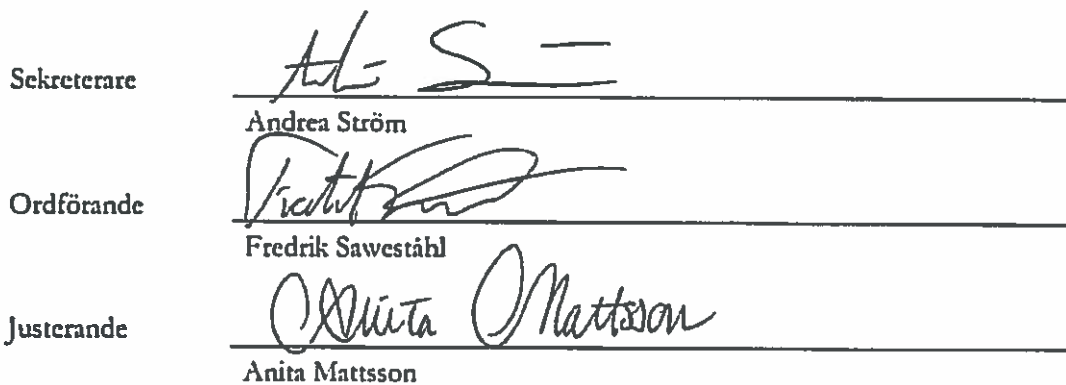 Sekreterare
Andrea Ström
Ordförande
Fredrik Saweståhl
Justerande Anita Mattsson
Anita Mattsson